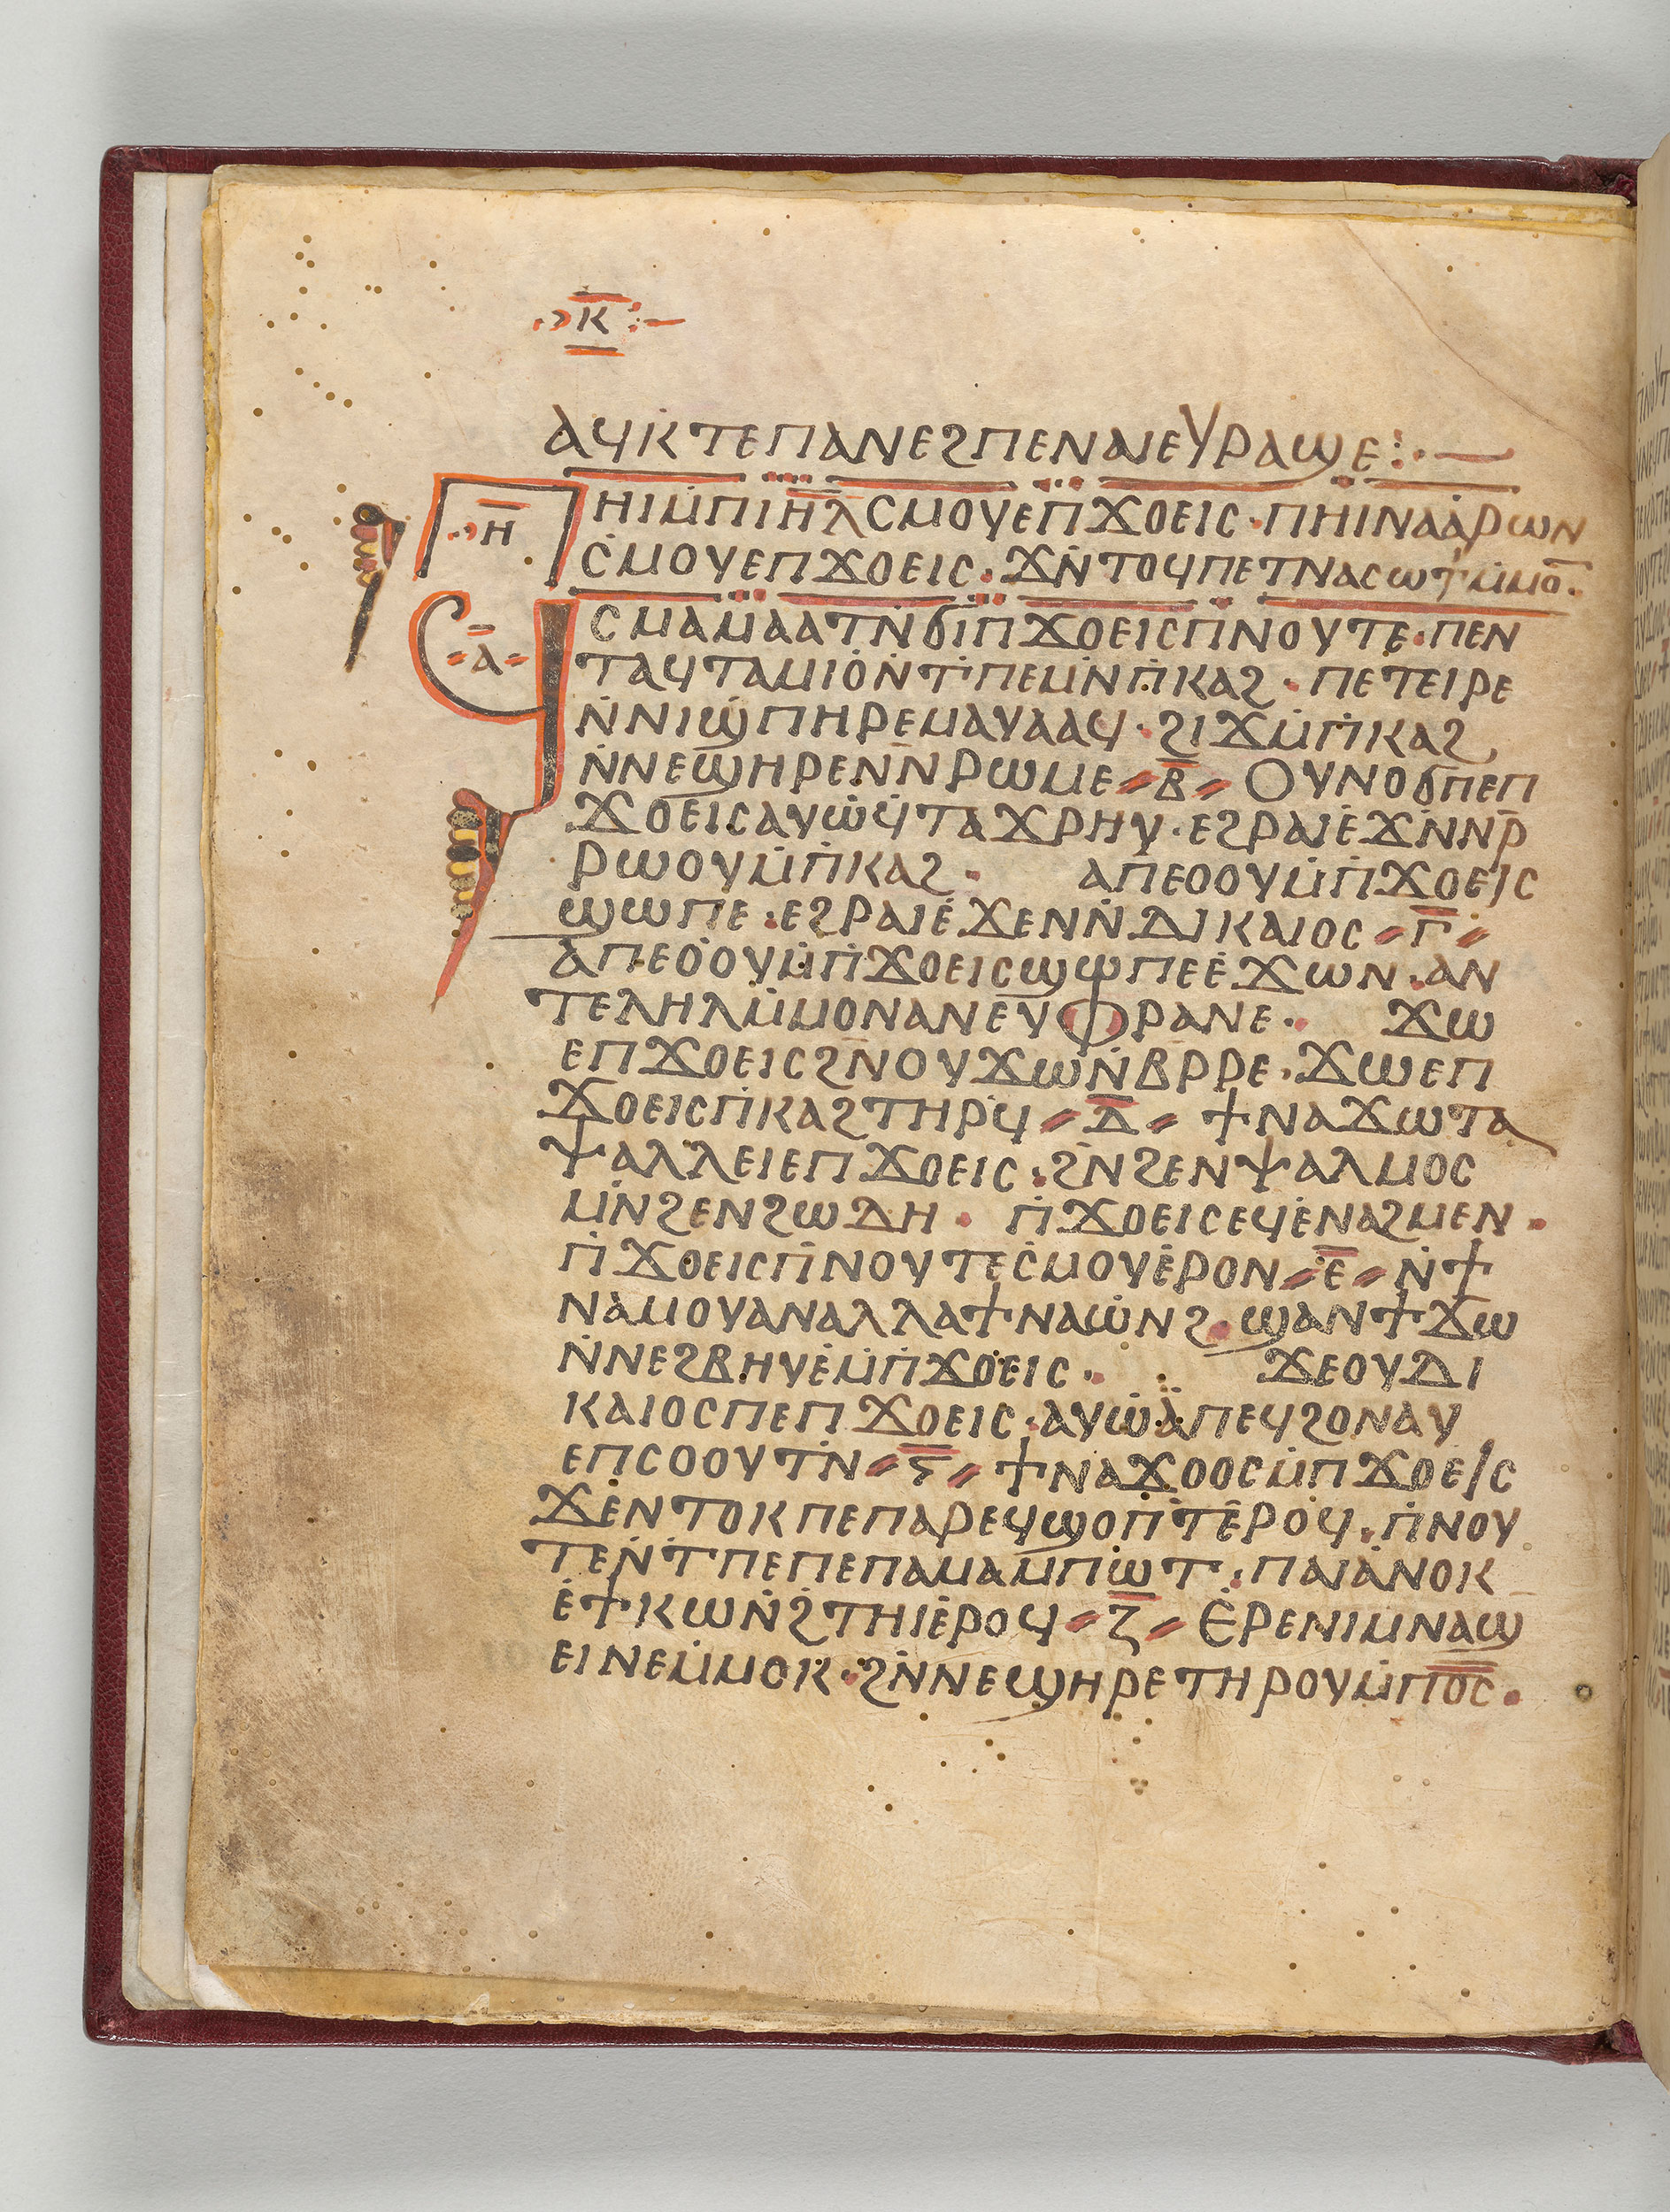 ⲕ̅
ⲁϥⲕⲧⲉⲡⲁⲛⲉϩⲡⲉⲛⲁⲓⲉⲩⲣⲁϣⲉ
ⲏ̅ ⲡⲏⲓⲙ̇ⲡⲓⲏ̅ⲗ̅ⲥⲙⲟⲩⲉⲡϫⲟⲉⲓⲥ·ⲡⲏⲓⲛⲁⲁ̇ⲣⲱⲛ
ⲥ̇ⲙⲟⲩⲉⲡϫⲟⲉⲓⲥ·ϫⲛ̇ⲧⲟϥⲡⲉⲧⲛⲁⲥⲱⲧⲙ̇ⲙⲟ̅·
ⲁ̅ ϥⲥⲙⲁⲙ̇ⲁⲁⲧⲛ̇ϭⲓⲡϫⲟⲉⲓⲥⲡ̇ⲛⲟⲩⲧⲉ·ⲡⲉⲛ
ⲧⲁϥⲧⲁⲙⲓⲟ̇ⲛ̇ⲧ̇ⲡⲉⲙ̇ⲛ̇ⲡ̇ⲕⲁϩ·ⲡⲉⲧⲉⲓⲣⲉ
ⲛ̇ⲛⲓϣⲡⲏⲣⲉⲙⲁⲩⲁⲁϥ·ϩⲓϫⲙ̇ⲡ̇ⲕⲁϩ
ⲛ̇ⲛⲉϣⲏⲣⲉⲛ̇ⲛ̇ⲣⲱⲙⲉ ⲃ̅ ⲟⲩⲛⲟϭⲡⲉⲡ
ϫⲟⲉⲓⲥⲁⲩⲱ̇ϥ̇ⲧⲁϫⲣⲏⲩ·ⲉϩⲣⲁⲓⲉ̇ϫⲛ̇ⲛⲣ̅
ⲣⲱⲟⲩⲙ̇ⲡ̇ⲕⲁϩ· ⲁⲡⲉⲟⲟⲩⲙ̇ⲡ̇ϫⲟⲉⲓⲥ
ϣⲱⲡⲉ·ⲉϩⲣⲁⲓⲉ̇ϫⲉⲛⲛ̇ⲇⲓⲕⲁⲓⲟⲥ ⲅ̅
ⲁⲡⲉⲟ̇ⲟⲩⲙ̇ⲡ̇ϫⲟⲉⲓⲥϣⲱⲡⲉⲉ̇ϫⲱⲛ·ⲁⲛ
ⲧⲉⲗⲏⲗⲙ̇ⲙⲟⲛⲁⲛⲉⲩⲫⲣⲁⲛⲉ· ϫⲱ
ⲉⲡϫⲟⲉⲓⲥϩⲛ̅ⲟⲩϫⲱⲛ̇ⲃⲣⲣⲉ·ϫⲱⲉⲡ
ϫⲟⲉⲓⲥⲡ̇ⲕⲁϩⲧⲏⲣϥ̇ ⲇ̅ ϯⲛⲁϫⲱⲧⲁ
ⲯⲁⲗⲗⲉⲓⲉⲡϫⲟⲉⲓⲥ·ϩⲛ̇ϩⲉⲛⲯⲁⲗⲙⲟⲥ
ⲙⲛ̇ϩⲉⲛϩⲱⲇⲏ· ⲡ̇ϫⲟⲉⲓⲥⲉϥⲉ̇ⲛⲁϩⲙⲉⲛ·
ⲡ̇ϫⲟⲉⲓⲥⲡ̇ⲛⲟⲩⲧⲉⲥ̇ⲙⲟⲩⲉ̇ⲣⲟⲛ ⲉ̅ ⲛ̇ϯ
ⲛⲁⲙⲟⲩⲁⲛⲁⲗⲗⲁϯⲛⲁⲱ̇ⲛϩ·ϣⲁⲛϯϫⲱ
ⲛ̇ⲛⲉϩⲃⲏⲩⲉ̇ⲙ̇ⲡ̇ϫⲟⲉⲓⲥ· ϫⲉⲟⲩⲇⲓ
ⲕⲁⲓⲟⲥⲡⲉⲡϫⲟⲉⲓⲥ·ⲁⲩⲱ̇ⲁ̇ⲡⲉϥϩⲟⲛⲁⲩ
ⲉⲡⲥⲟⲟⲩⲧⲛ̇ ⲋ̅ ϯⲛⲁϫⲟⲟⲥⲙ̇ⲡϫⲟⲉⲓⲥ
ϫⲉ̇ⲛⲧⲟⲕⲡⲉⲡⲁⲣⲉϥϣⲟⲡ̇ⲧ̇ⲉ̇ⲣⲟϥ·ⲡ̇ⲛⲟⲩ
ⲧⲉⲛ̇ⲧ̇ⲡⲉⲡⲉⲡⲁⲙⲁⲙⲡⲱ̇ⲧ·ⲡⲁⲓⲁ̇ⲛⲟⲕ
ⲉ̇ϯⲕⲱⲛ̇ϩ̇ⲧⲏⲓⲉ̇ⲣⲟϥ ⲍ̅ ⲉ̇ⲣⲉⲛⲓⲙⲛⲁϣ
ⲉⲓⲛⲉⲙ̇ⲙⲟⲕ·ϩⲛ̇ⲛⲉϣⲏⲣⲉⲧⲏⲣⲟⲩⲙ̇ⲡⲟ̅ⲥ̅·